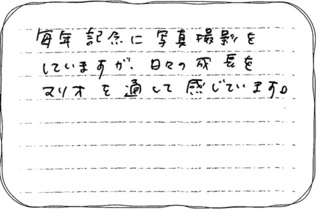 毎年記念に写真撮影を
していますが、日々の成長を
マリオを通して感じています。